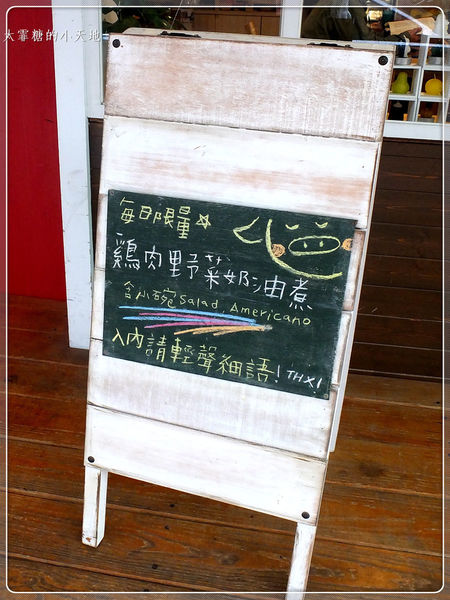 太霏糖的小天地
每日限量☆
鷄肉野菜奶油煮
含小碗Salad, Americano
入內請輕聲細語! THX!